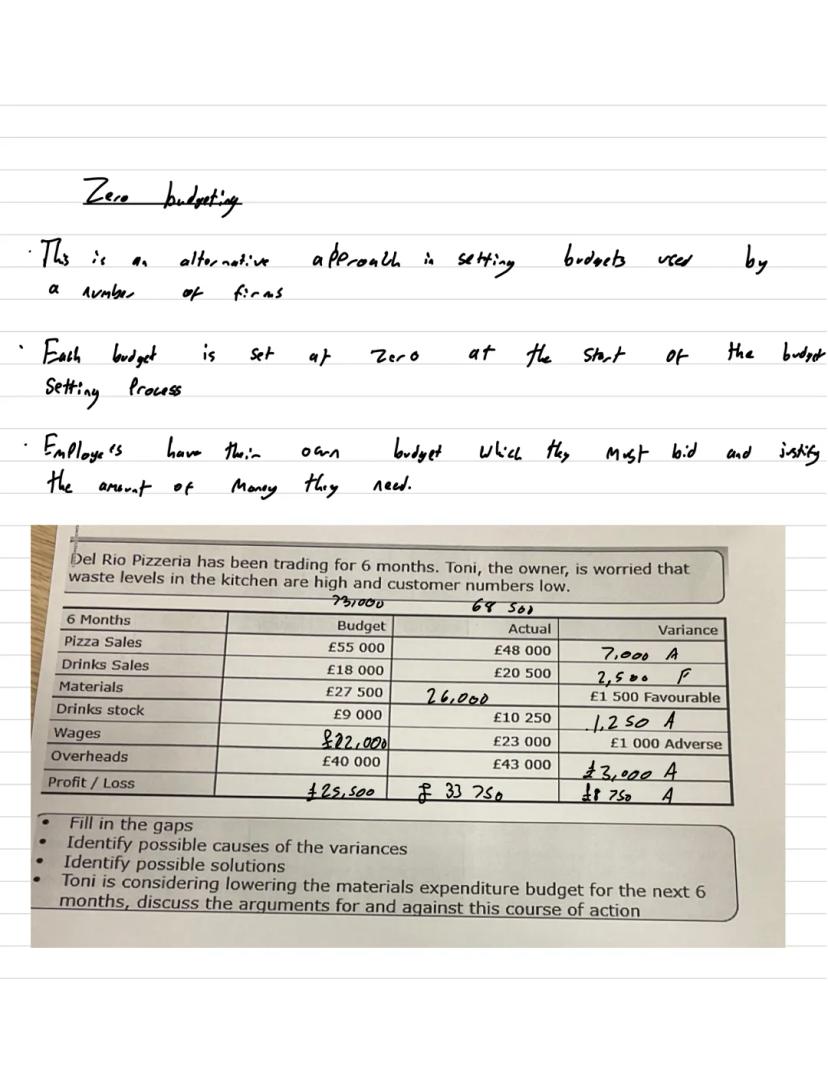 Zero budgeting
· This is an alternative approach in setting budgets used by
a number of firms
· Each budget is set at zero at the start of the budget
Setting Process
· Employees have their own budget which they must bid and justify
the amount of money they need.
Del Rio Pizzeria has been trading for 6 months. Toni, the owner, is worried that
waste levels in the kitchen are high and customer numbers low.
73,000 68 500
6 Months Budget Actual Variance
Pizza Sales £55 000 £48 000 7,000 A
Drinks Sales £18 000 £20 500 2,500 F
Materials £27 500 26,000 £1 500 Favourable
Drinks stock £9 000 £10 250 1,250 A
Wages £22,000 £23 000 £1 000 Adverse
Overheads £40 000 £43 000 £3,000 A
Profit / Loss £25,500 £ 33 750 £8 750 A
• Fill in the gaps
• Identify possible causes of the variances
• Identify possible solutions
• Toni is considering lowering the materials expenditure budget for the next 6
months, discuss the arguments for and against this course of action